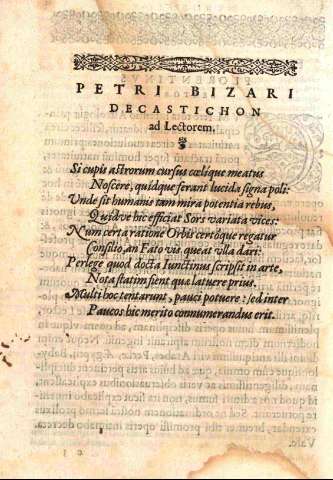 PETRI BIZARI
DECASTICHON
ad Lectorem.
Si cupis astrorum cursus cœlique meatus
Noscere, quidque ferant lucida signa poli:
Vnde sit humanis tam mira potentia rebus,
Quidve hic efficiat Sors variata vices:
Num certa ratione Orbis certoque regatur
Consilio, an Fato vis queat vlla dari:
Perlege quod docta Iunctinus scripsit in arte,
Nota statim fient quæ latuere prius.
Multi hoc tentarunt, pauci potuere: sed inter
Paucos hic merito connumerandus erit.